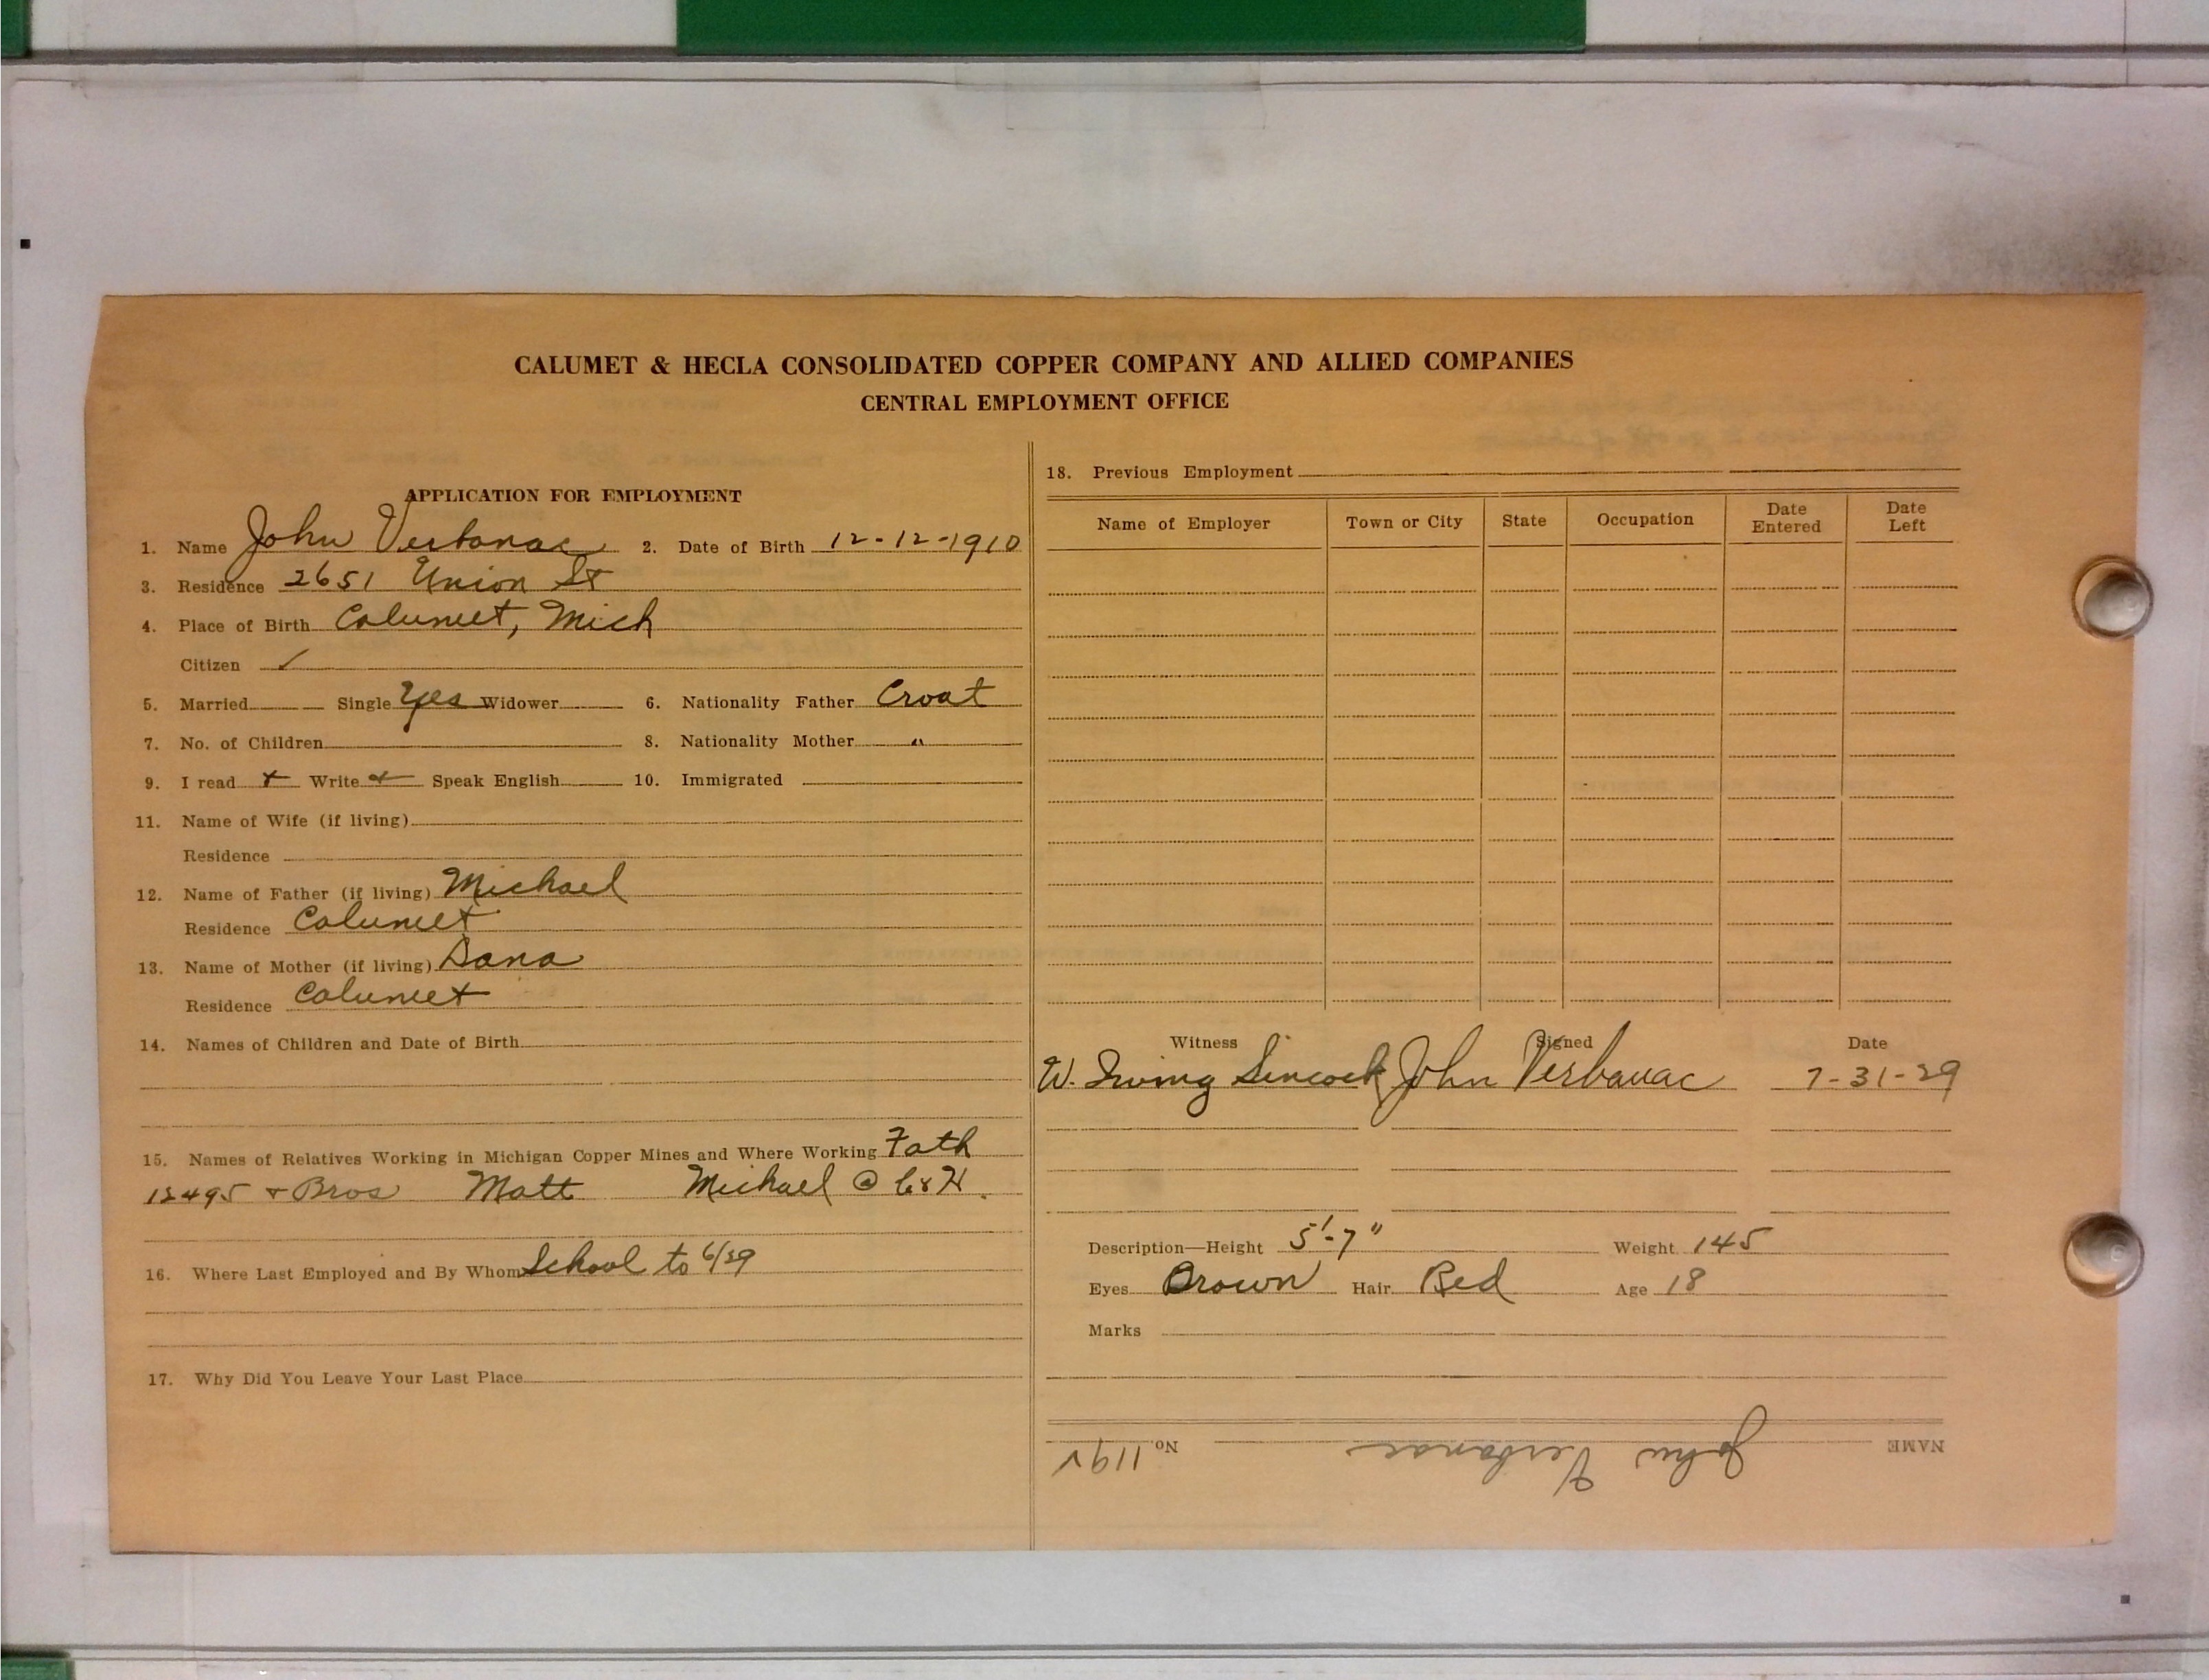 CALUMET & HECLA CONSOLIDATED COPPER COMPANY AND ALLIED COMPANIES
CENTRAL EMPLOYMENT OFFICE
APPLICATION FOR EMPLOYMENT
1. Name John Verbanac 2. Date of Birth 12-12-1910
3. Residence 2651 Union St
4. Place of Birth Calumet, Mich
Citizen ✓
5. Married — Single Yes Widower 6. Nationality Father Croat
7. No. of Children 8. Nationality Mother "
9. I read + Write + Speak English 10. Immigrated
11. Name of Wife (if living)
Residence
12. Name of Father (if living) Michael
Residence Calumet
13. Name of Mother (if living) Dana
Residence Calumet
14. Names of Children and Date of Birth
15. Names of Relatives Working in Michigan Copper Mines and Where Working Fath
12495 + Bros Matt Michael @ C&H.
16. Where Last Employed and By Whom School to 6/29
17. Why Did You Leave Your Last Place
18. Previous Employment
Name of Employer Town or City State Occupation Date Entered Date Left
Witness Signed Date
W. Irving Sincock John Verbanac 7-31-29
Description—Height 5'-7" Weight 145
Eyes Brown Hair Red Age 18
Marks
NAME John Verbanac No. 1192